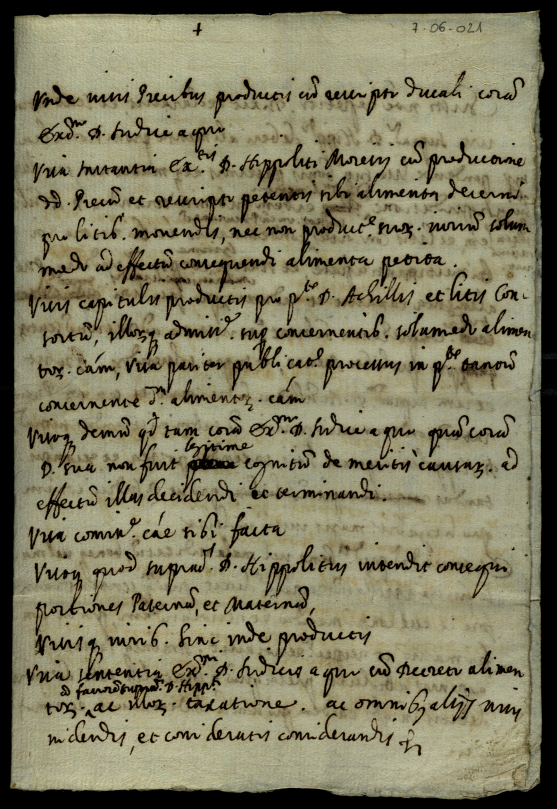 +
7-06-021
Unde visis Precibus productis cũ rescripto ducali corã
Exc.mo D. Iudice a quo
Visa Instantia Ex.tis D. Hippoliti Moreni cũ productione
dd. Precũ et rescripti petentis sibi alimenta decerni
pro litib. movendis, nec non product.e suoȝ. iuriũ solum
modo ad effectũ consequendi alimenta petita.
Visis capitulis productis pro p.te D. Achillis et litis Con-
sortũ, illoȝq admiss.e sup concernentib. solumodo alimen
toȝ. cãm, Visa pariter publicat.e processus in p.te tantũ
concernente d.m alimentoȝ. cãm
Visoq demũ qd tam corã Exc.mo D. Iudice a quo quã corã
D. sua non fuit legitime cognitũ de meritis causaȝ. ad
effectũ illas decidendi et terminandi.
Visa comiss.e cãe sibi facta
Visoq quod suprad.s D. Hippolitus intendit consequi
portiones Paternã, et Maternã,
Visisq iurib. hinc inde productis
Visa sententia Exc.mi D. Iudicis a quo cũ Decreto alimen
toȝ. ad favorẽ suprad. D. Hipp.i ac illoȝ. taxatione. ac omnibȝ alijs visis
videndis, et consideratis considerandis